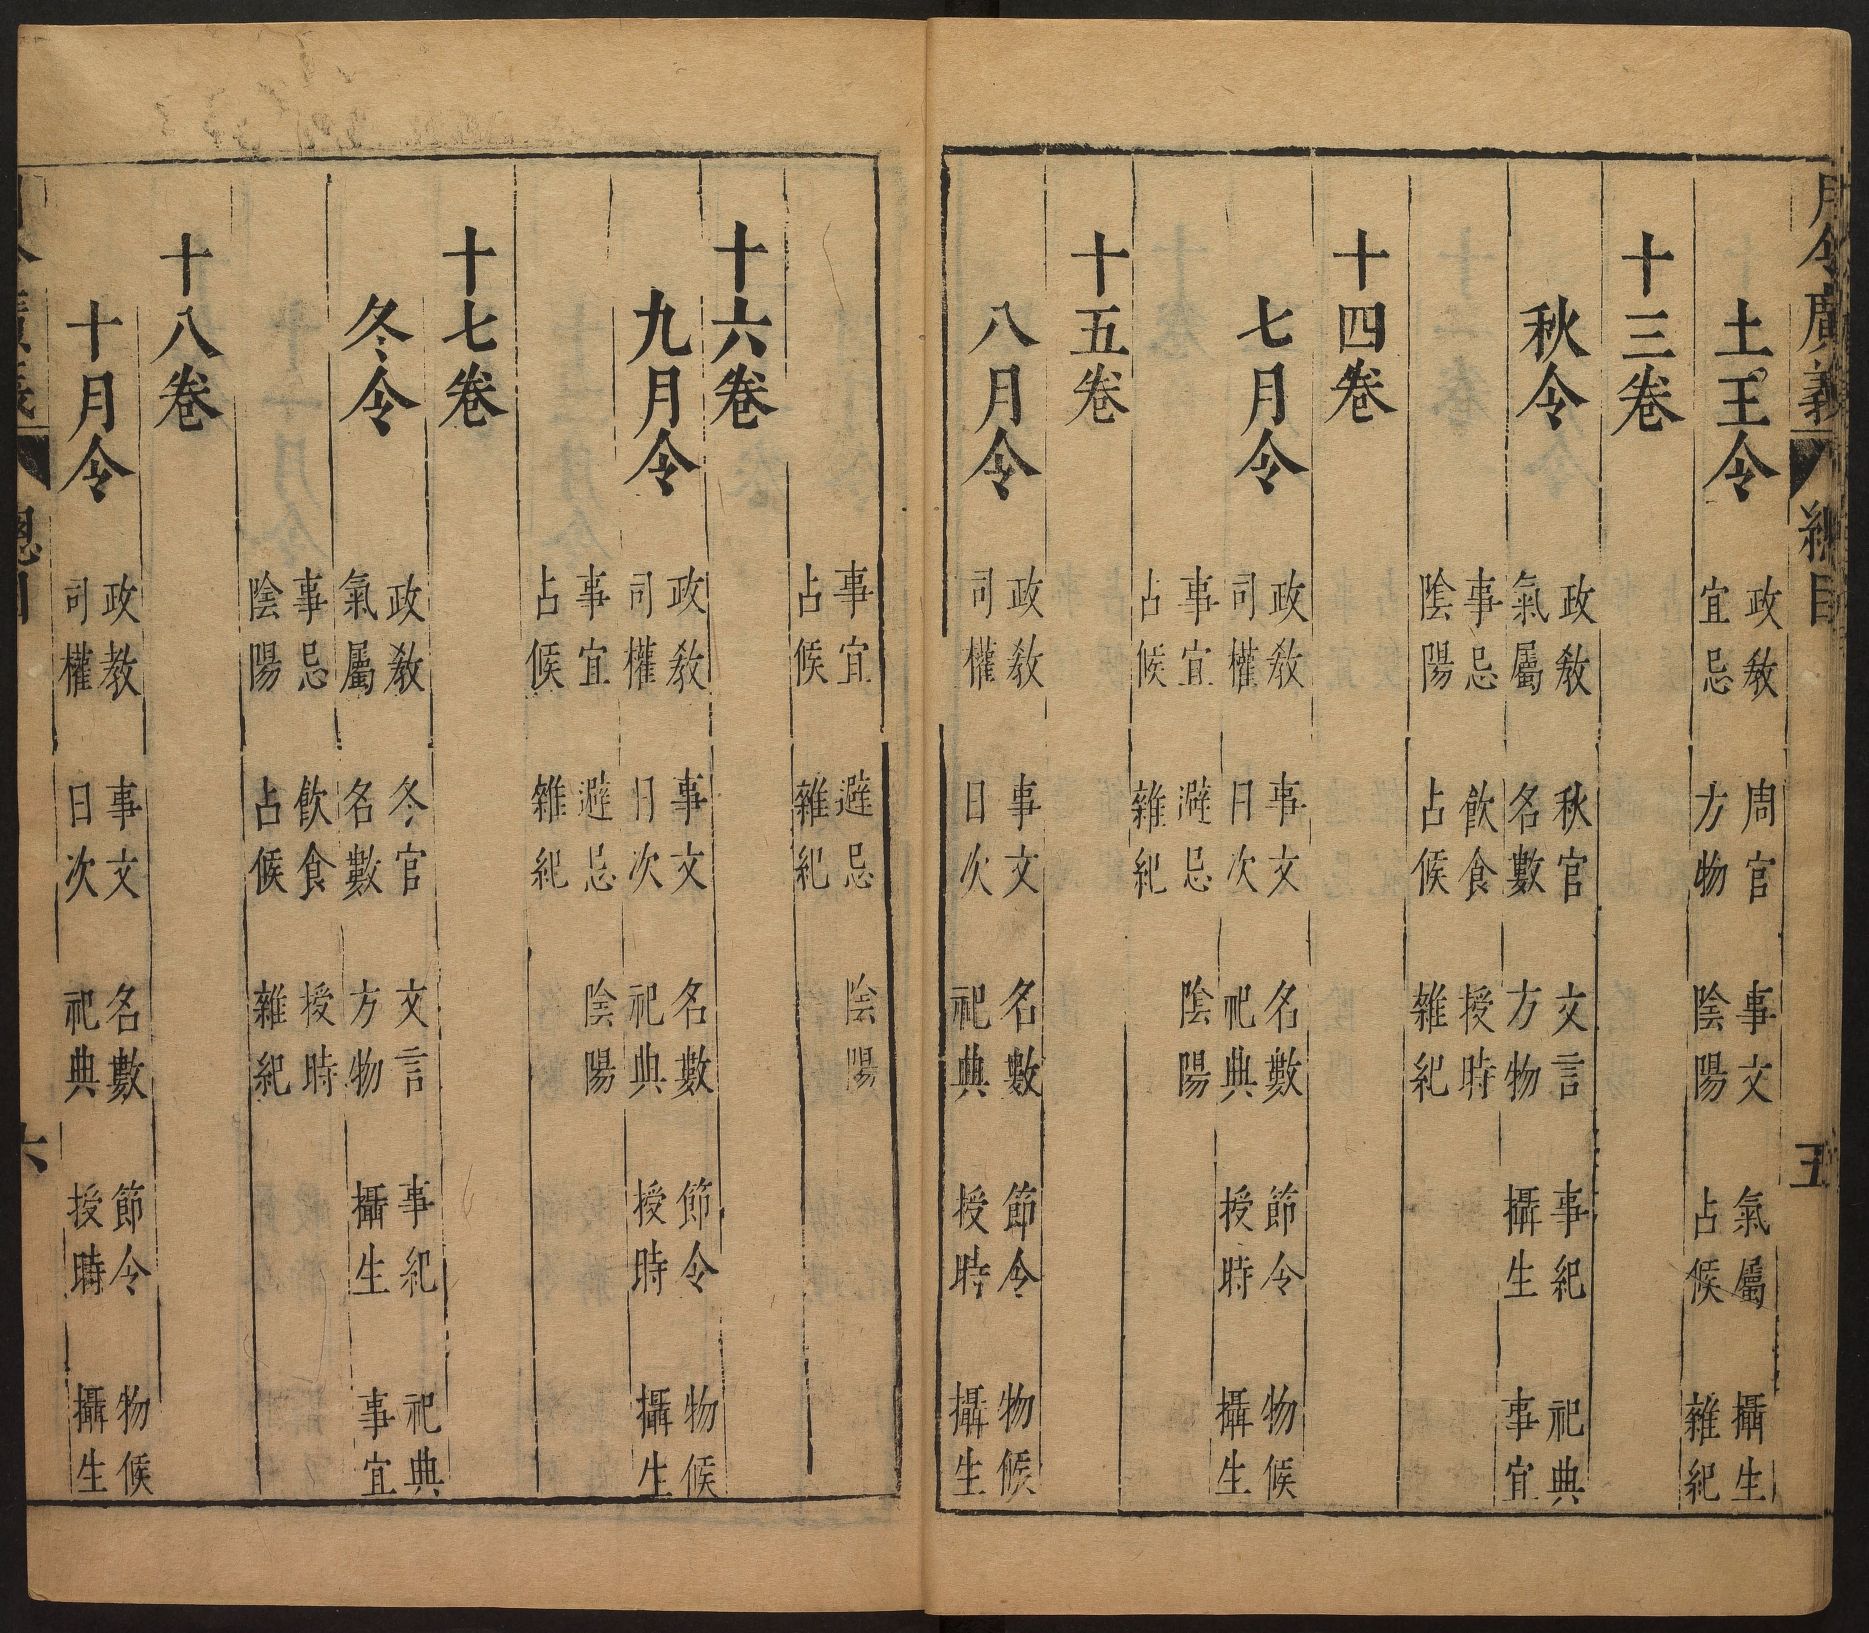 月令廣義 總目 五
土王令
政教 周官 事文 氣屬 攝生
宜忌 方物 陰陽 占候 雜紀
十三卷
秋令
政教 秋官 文言 事紀 祀典
氣屬 名數 方物 攝生 事宜
事忌 飲食 授時
陰陽 占候 雜紀
十四卷
七月令
政教 事文 名數 節令 物候
司權 日次 祀典 授時 攝生
事宜 避忌 陰陽
占候 雜紀
十五卷
八月令
政教 事文 名數 節令 物候
司權 日次 祀典 授時 攝生
事宜 避忌 陰陽
占候 雜紀
十六卷
九月令
政教 事文 名數 節令 物候
司權 日次 祀典 授時 攝生
事宜 避忌 陰陽
占候 雜紀
十七卷
冬令
政教 冬官 文言 事紀 祀典
氣屬 名數 方物 攝生 事宜
事忌 飲食 授時
陰陽 占候 雜紀
十八卷
十月令
政教 事文 名數 節令 物候
司權 日次 祀典 授時 攝生
月令廣義 總目 六